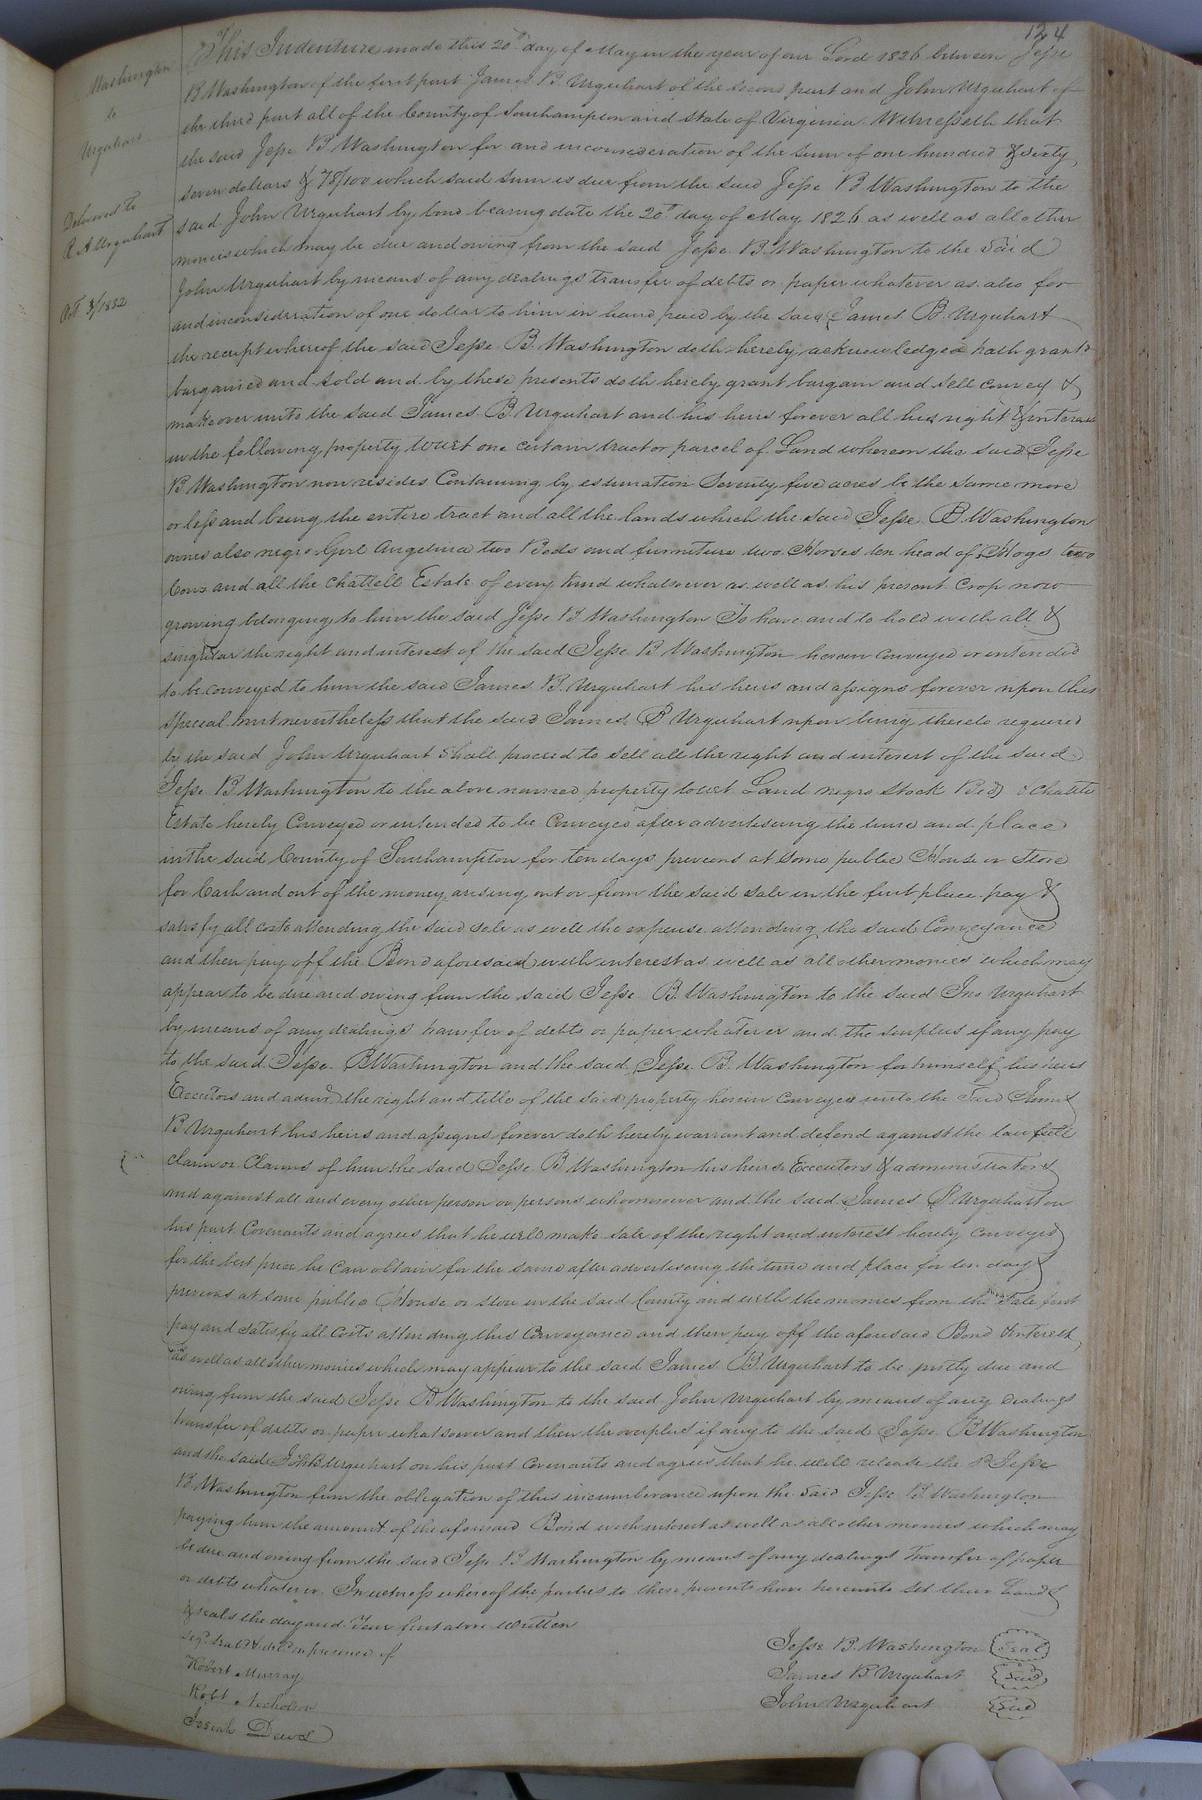 124
Washington
to
Urquhart
Delivered to
R. A. Urquhart
Oct. 3/1832
This Indenture made this 20th day of May in the year of our Lord 1826 between Jesse
B Washington of the first part James B Urquhart of the second part and John Urquhart of
the third part all of the County of Southampton and State of Virginia. Witnesseth that
the said Jesse B Washington for and in consideration of the sum of one hundred & sixty
seven dollars & 78/100 which said sum is due from the said Jesse B Washington to the
said John Urquhart by bond bearing date the 20th day of May 1826 as well as all other
monies which may be due and owing from the said Jesse B. Washington to the said
John Urquhart by means of any dealings transfer of debts or paper whatever as also for
and in consideration of one dollar to him in hand paid by the said James B. Urquhart
the receipt whereof the said Jesse B. Washington doth hereby acknowledge hath grant
bargained and sold and by these presents doth hereby grant bargain and sell convey &
make over unto the said James B Urquhart and his heirs forever all his right & interest
in the following property towit one certain tract or parcel of Land whereon the said Jesse
B Washington now resides Containing by estimation Seventy five acres be the same more
or less and being the entire tract and all the lands which the said Jesse B. Washington
ownes also negro Girl Angelina two Beds and furniture two Horses ten head of Hogs two
Cows and all the Chattell Estate of every kind whatsoever as well as his present Crop now
growing belonging to him the said Jesse B Washington To have and to hold with all &
singular the right and interest of the said Jesse B Washington herein conveyed or intended
to be conveyed to him the said James B. Urquhart his heirs and assigns forever upon this
special trust nevertheless that the said James B Urquhart upon being thereto required
by the said John Urquhart shall proceed to sell all the right and interest of the said
Jesse B Washington to the above named property towit Land negro Stock Beds & Chattle
Estate hereby Conveyed or intended to be Conveyed after advertiseing the time and place
in the said County of Southampton for ten days previous at some public House or Store
for Cash and out of the money arising out or from the said sale in the first place pay &
satisfy all costs attending the said sale as well the expense attending the said Conveyance
and then pay off the Bond aforesaid with interest as well as all other monies which may
appear to be due and owing from the said Jesse B. Washington to the said Jno Urquhart
by means of any dealings transfer of debts or paper whatever and the surplus if any pay
to the said Jesse B Washington and the said Jesse B. Washington for himself his heirs
Executors and admrs the right and title of the said property herein Conveyed unto the said James
B Urquhart his heirs and assigns forever doth hereby warrant and defend against the lawfull
claim or Claims of him the said Jesse B Washington his heirs Executors & administrators
and against all and every other person or persons whomsoever and the said James B. Urquhart on
his part Covenants and agrees that he will make sale of the right and interest hereby conveyed
for the best price he can obtain for the same after advertiseing the time and place for ten days
previous at some public House or store in the said County and with the monies from the Sale first
pay and satisfy all Costs attending this Conveyance and then pay off the aforesaid Bond & interest
as well as all other monies which may appear to the said James B. Urquhart to be justly due and
owing from the said Jesse B Washington to the said John Urquhart by means of any dealings
transfer of debts or paper whatsoever and then the overplus if any to the said Jesse B Washington
and the said Urquhart on his part Covenants and agrees that he will release the sd Jesse
B. Washington from the obligation of this incumberance upon the said Jesse B Washington
paying him the amount of the aforesaid Bond with interest as well as all other monies which may
be due and owing from the said Jesse B Washington by means of any dealings transfer of paper
or debts whatever. In witness whereof the parties to these presents have hereunto set their hands
& seals the day and Year first above Written
Sigd Seald & deld in presence of
Robert Murray
Robt Nicholson
Josiah
Jesse B. Washington Seal
James B Urquhart Seal
John Urquhart Seal